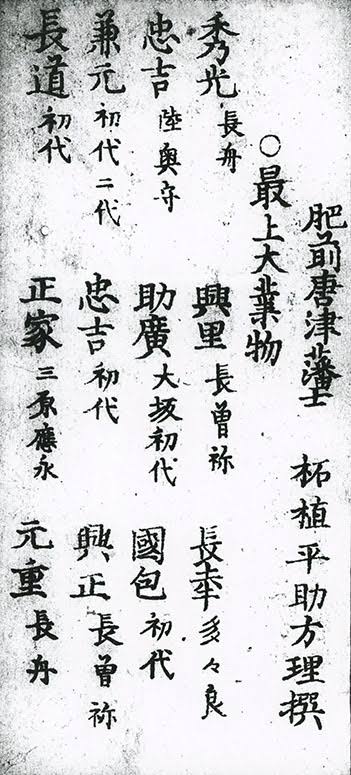 肥前唐津藩士 柘植平助方理撰
○最上大業物
秀光 長舟 興里 長曽祢 長幸 多々良
忠吉 陸奥守 助廣 大坂初代 國包 初代
兼元 初代二代 忠吉 初代 興正 長曽祢
長道 初代 正家 三原應永 元重 長舟